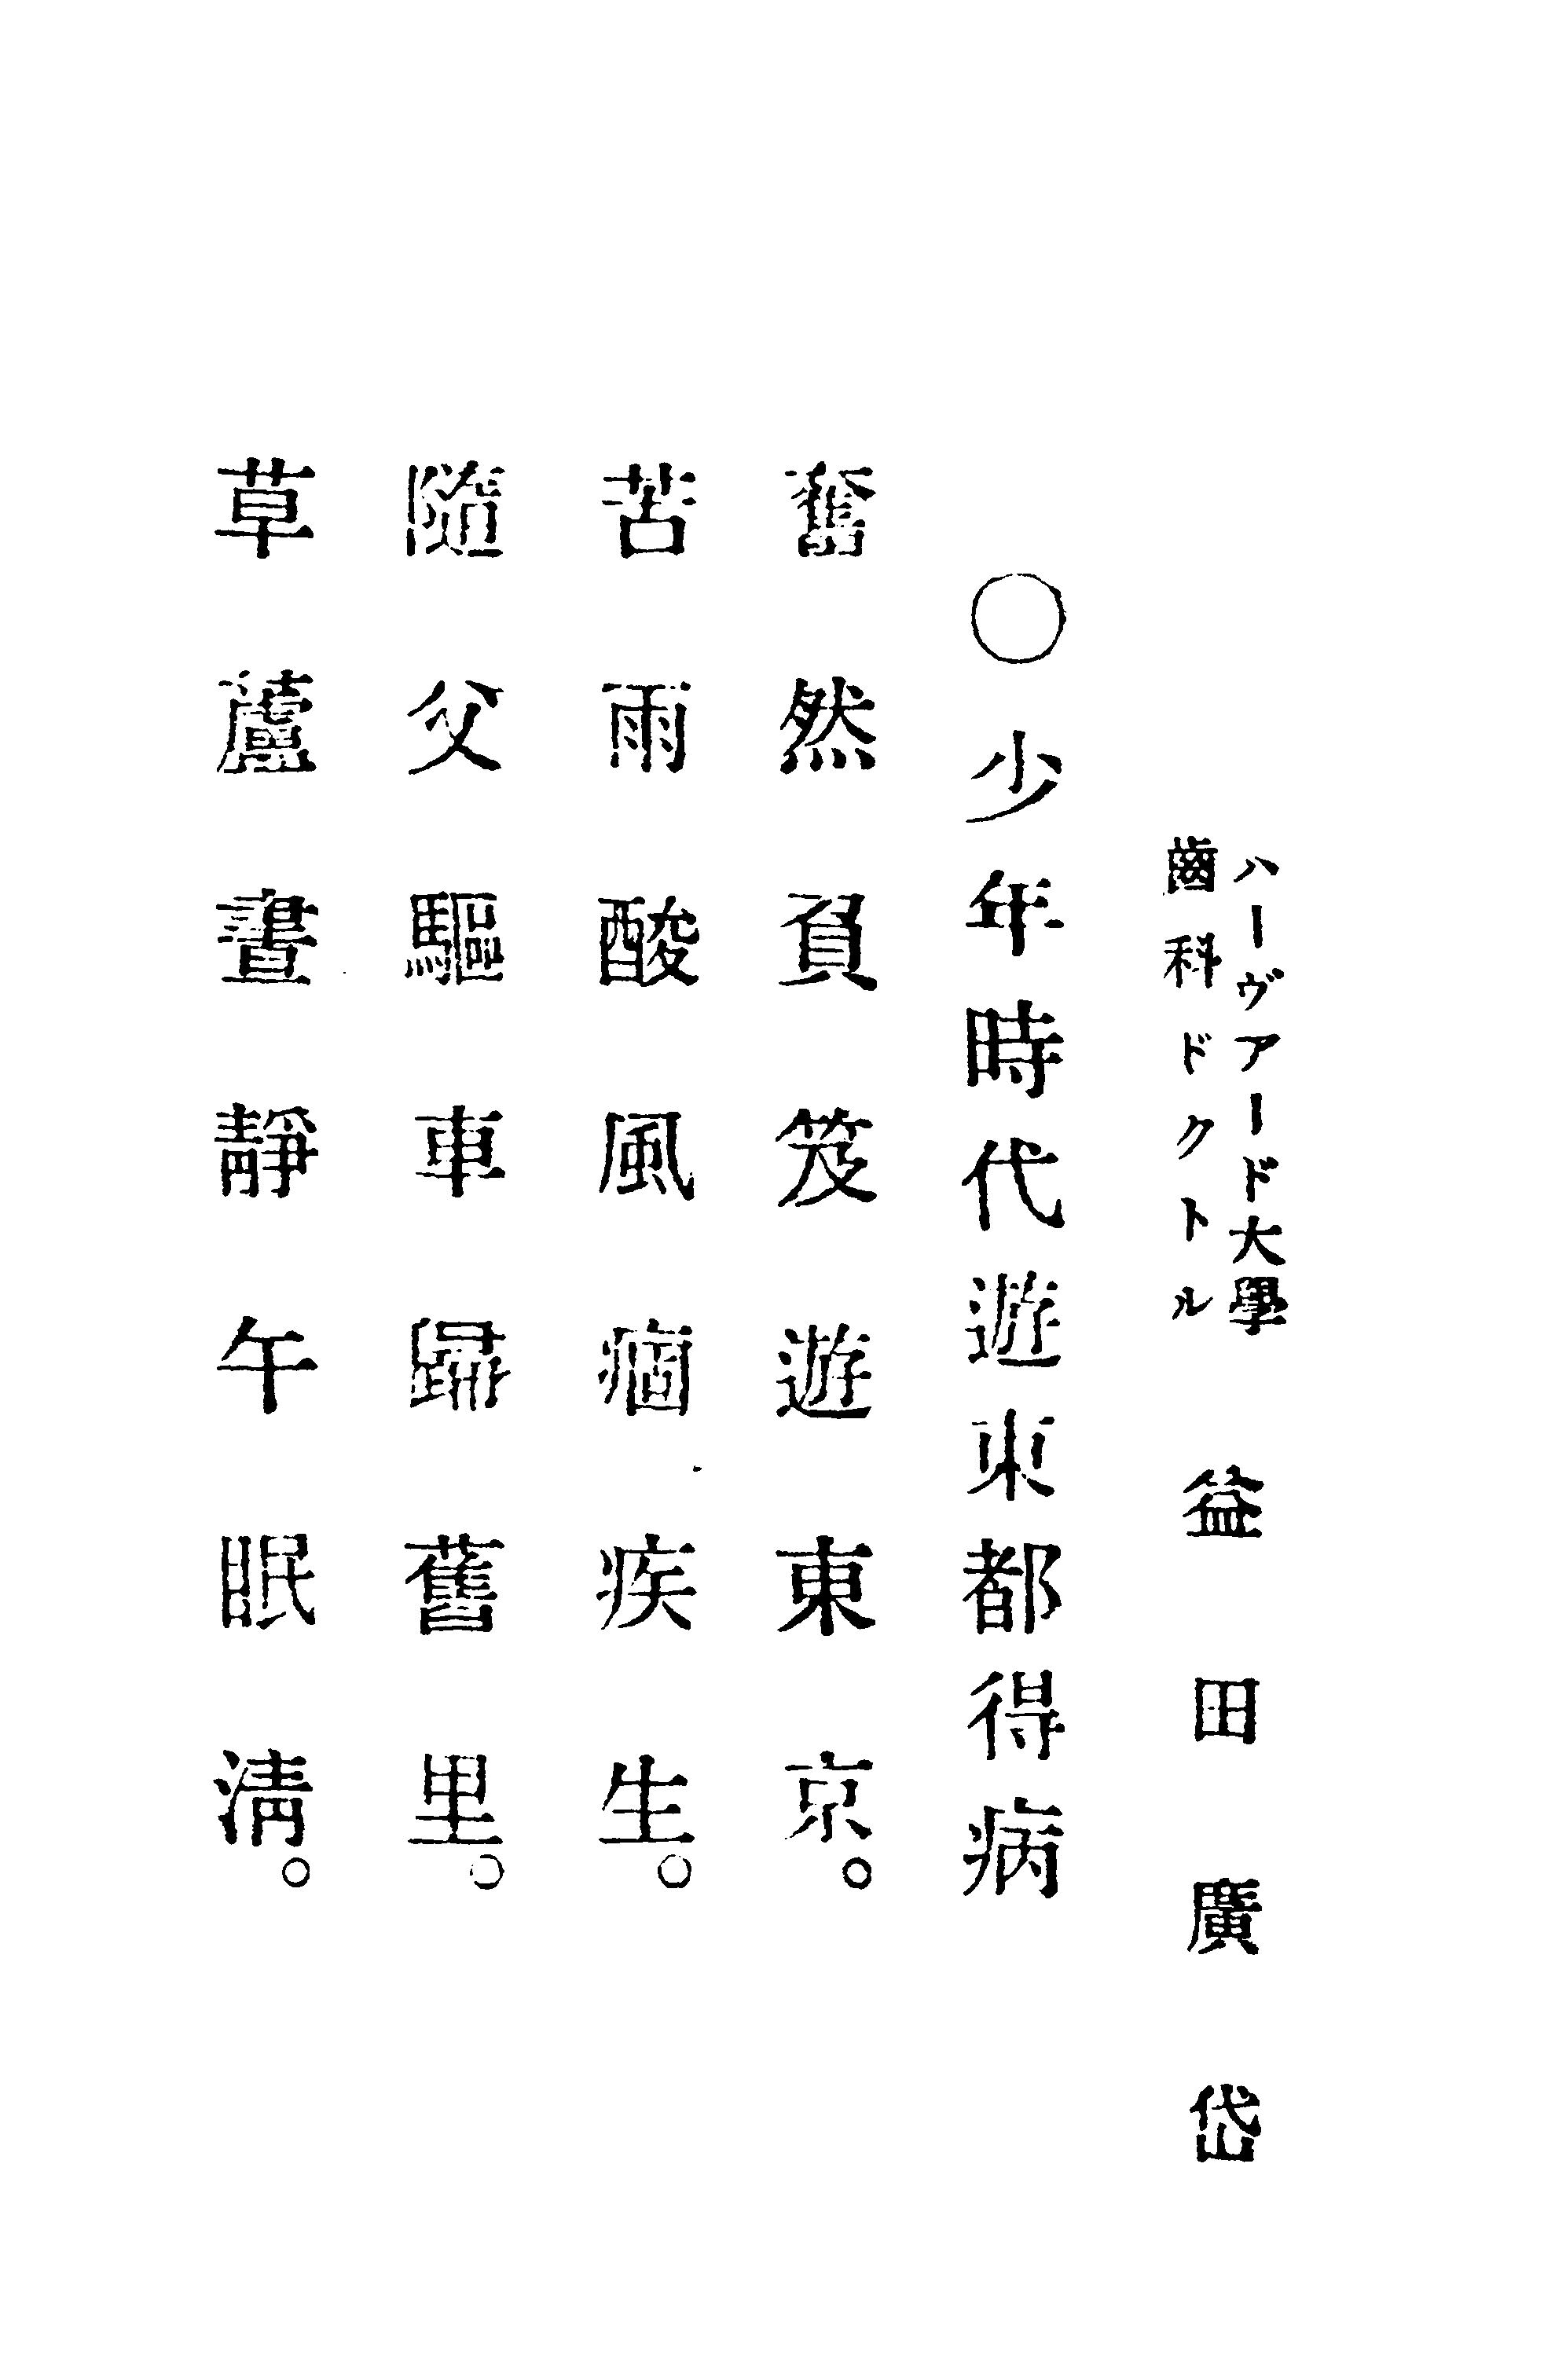 ハーヴアード大學
齒科ドクトル
益田廣岱
○少年時代遊東都得病
奮然負笈遊東京。
苦雨酸風痼疾生。
隨父驅車歸舊里。
草蘆晝靜午眠淸。